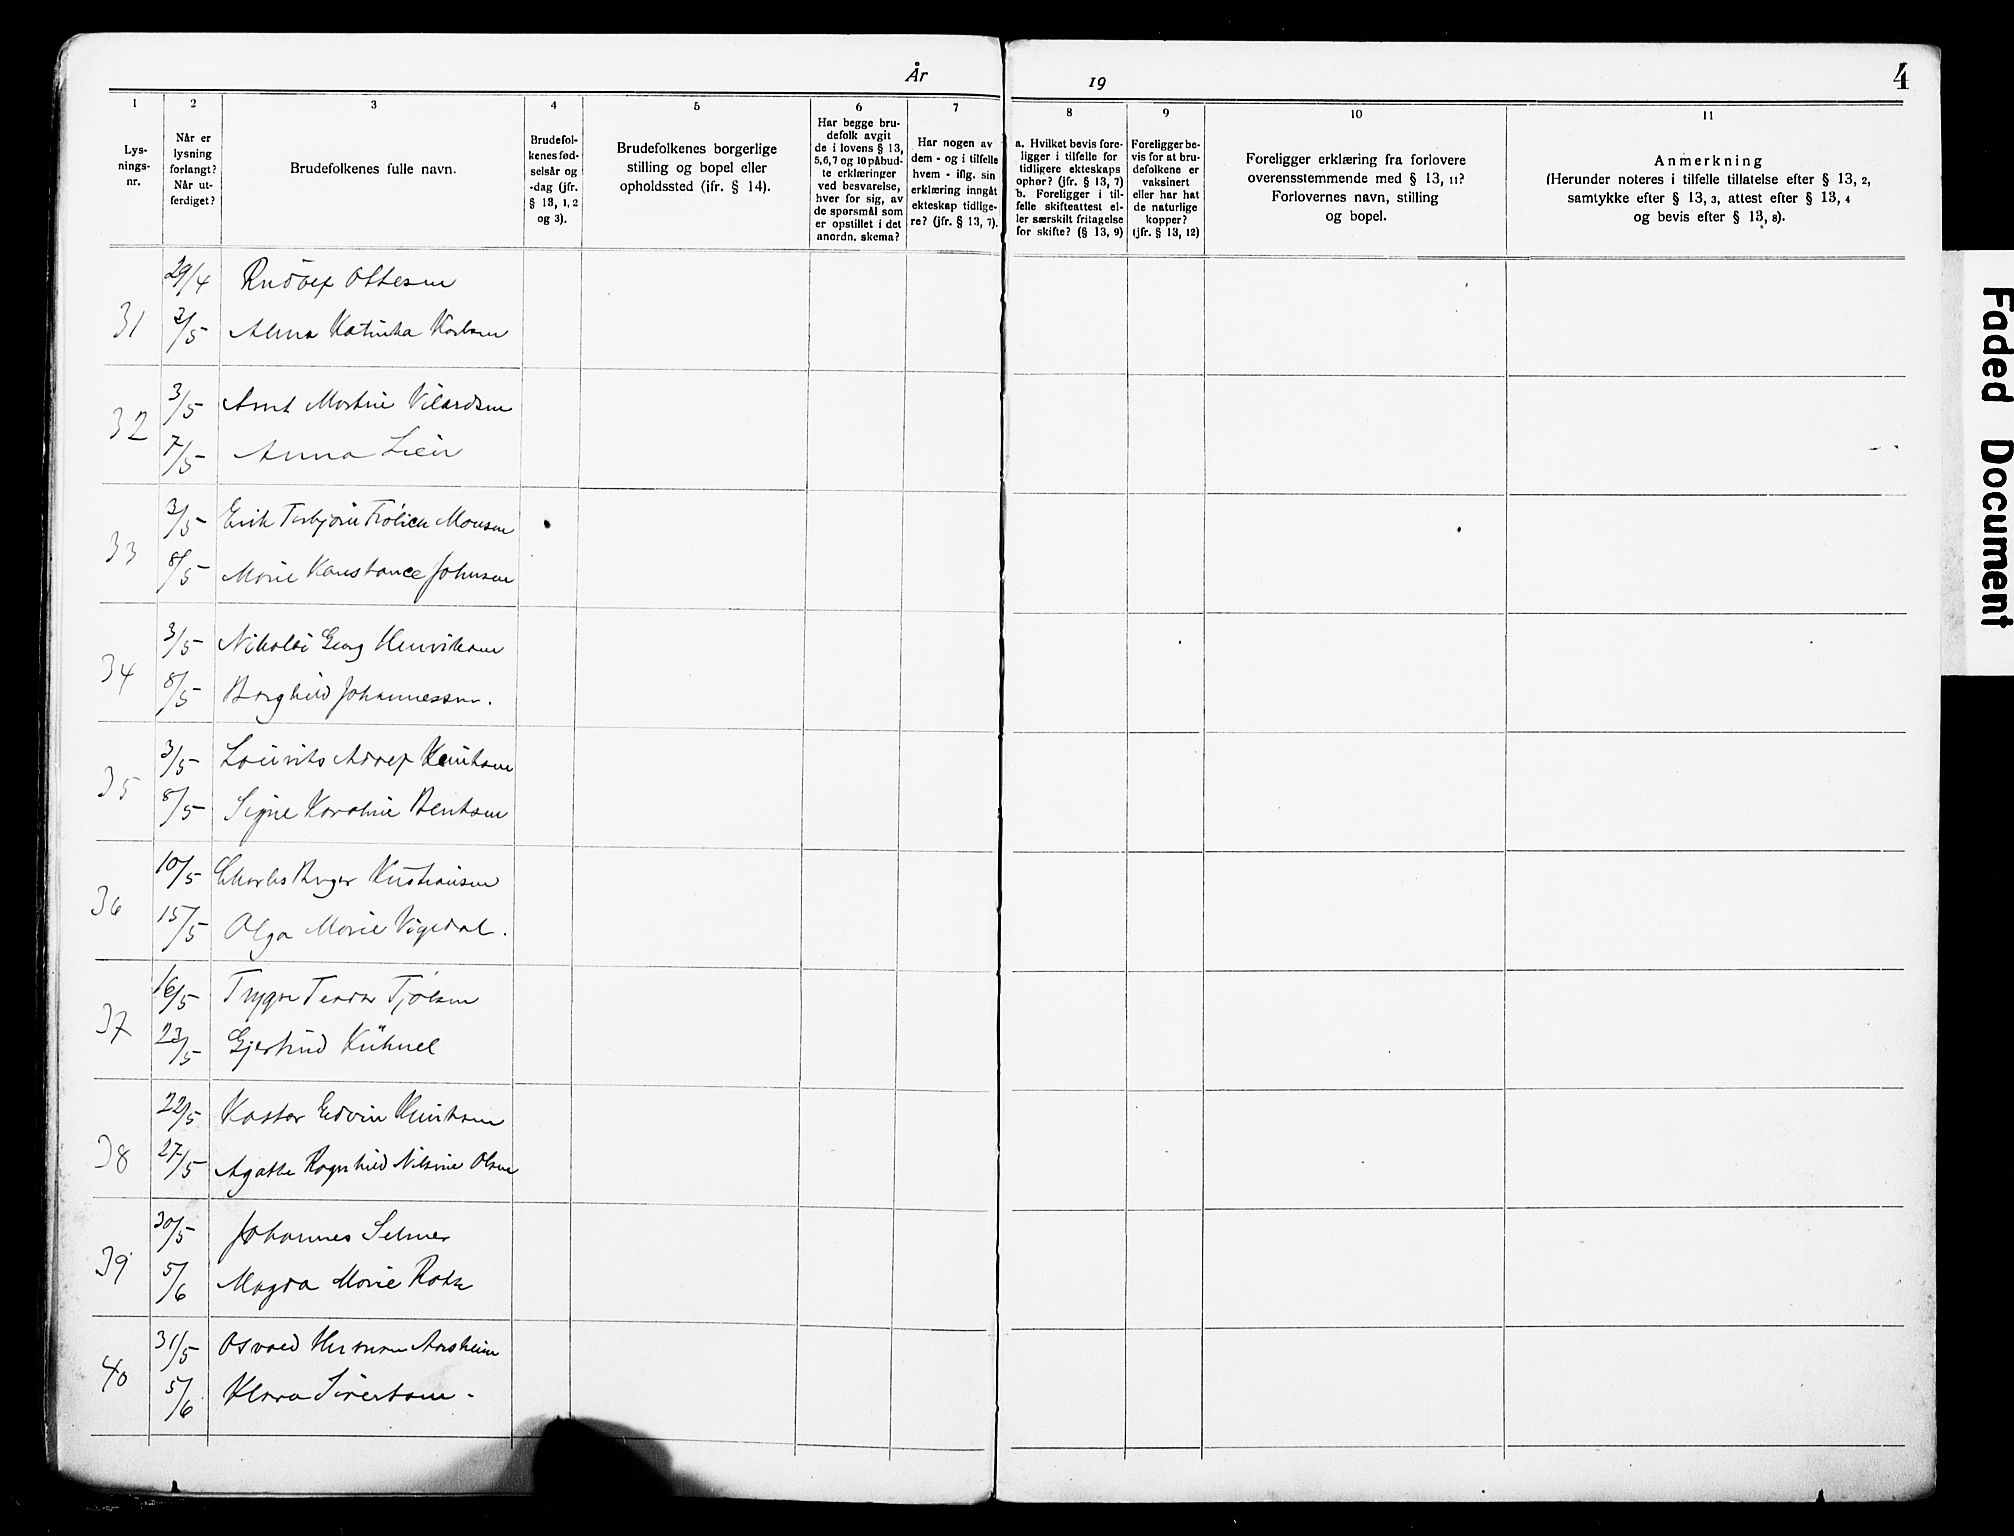 År 19
4
1 2 3 4 5 6 7 8 9 10 11
Lys-
nings-
nr.
Når er
lysning
forlangt?
Når ut-
ferdiget?
Brudefolkenes fulle navn.
Brudefol-
kenes fød-
selsår og
-dag (jfr.
§ 13, 1, 2
og 3).
Brudefolkenes borgerlige
stilling og bopel eller
opholdssted (ifr. § 14).
Har begge bru-
defolk avgit
de i lovens § 13,
5,6,7 og 10 påbud-
te erklæringer
ved besvarelse,
hver for sig, av
de spørsmål som
er opstillet i det
anordn. skema?
Har nogen av
dem - og i tilfelle
hvem - iflg. sin
erklæring inngåt
ekteskap tidlige-
re? (jfr. § 13, 7).
a. Hvilket bevis fore-
ligger i tilfelle for
tidligere ekteskaps
ophør? (jfr. § 13, 7)
b. Foreligger i til-
felle skifteattest el-
ler særskilt fritagelse
for skifte? (§ 13, 9)
Foreligger be-
vis for at bru-
defolkene er
vaksinert
eller har hat
de naturlige
kopper?
(jfr. § 13, 12)
Foreligger erklæring fra forlovere
overensstemmende med § 13, 11?
Forlovernes navn, stilling
og bopel.
Anmerkning
(Herunder noteres i tilfelle tillatelse efter § 13, 2,
samtykke efter § 13, 3, attest efter § 13, 4
og bevis efter § 13, 8).
29/4 Rudolf Ottesen
31 2/5 Alma Katinka Karlsen
3/5 Arnt Martin Vilardsen
32 7/5 Anna Lien
3/5 Erik Torbjørn Frölich Monsen
33 8/5 Marie Konstance Johnsen
3/5 Nikolai Georg Henriksen
34 8/5 Borghild Johannessen.
3/5 Lauritz Adolf
35 8/5 Signe Karoline Bentsen
10/5 Charles Birger Kristiansen
36 15/5 Olga Marie Vigedal.
16/5 Trygve Tjølsen
37 23/5 Gjertrud Kühnel
22/5 Kastor Edvin
38 27/5 Agathe Ragnhild Nilsine Olsen
30/5 Johannes Selmer
39 5/6 Magda Marie
31/5 Osvald Herman Aarsheim
40 5/6 Klara Sivertsen -
Faded Document